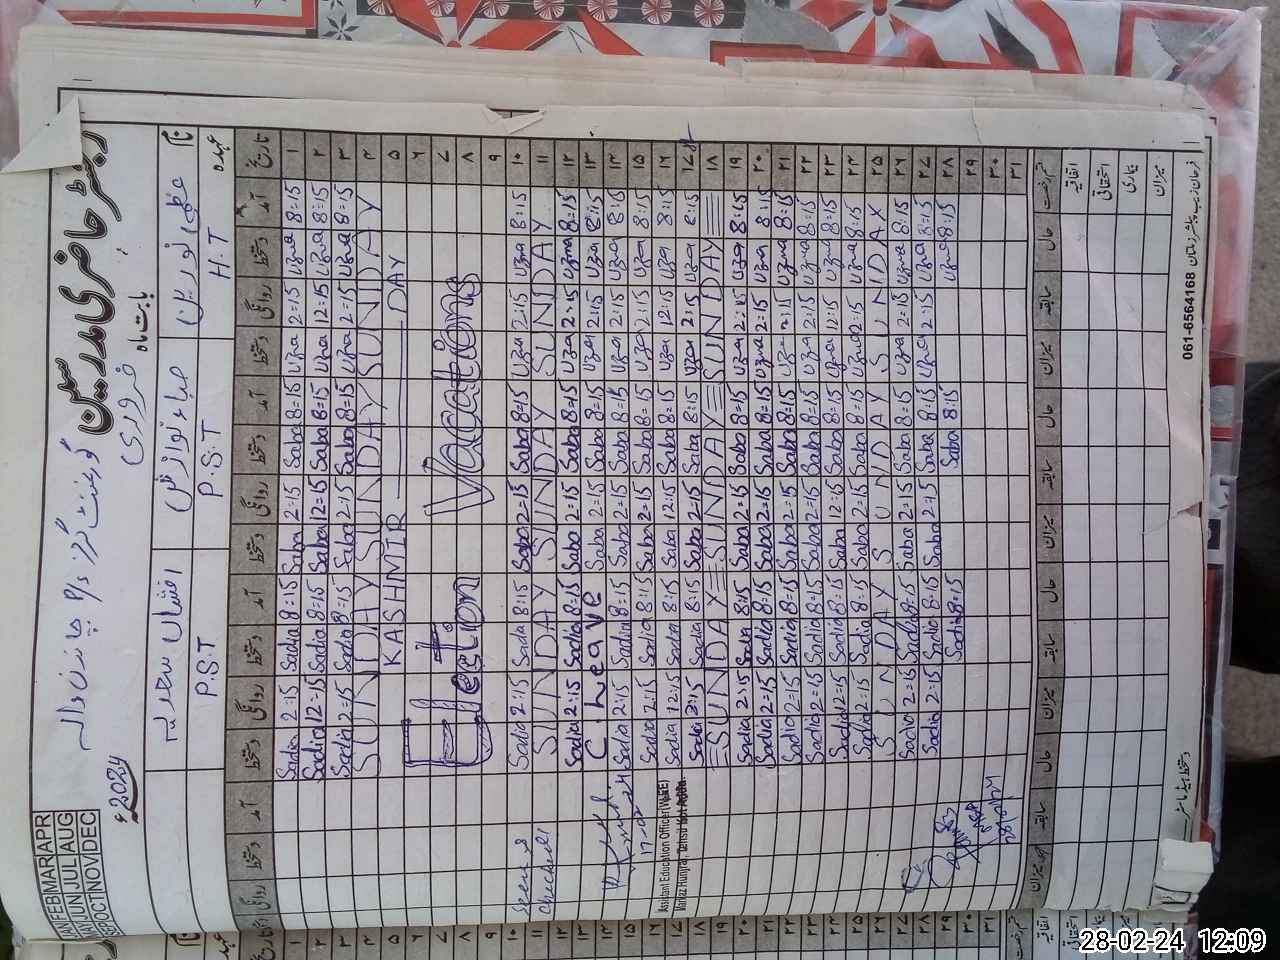 رجسٹر حاضری مدرسین
بابت ماہ فروری 2024ء
JAN FEB MAR APR
MAY JUN JUL AUG
SEP OCT NOV DEC
نام
عہدہ H.T P.S.T P.S.T
تاریخ آمد دستخط روانگی دستخط آمد دستخط روانگی دستخط آمد دستخط روانگی دستخط آمد دستخط روانگی
۱ 8:15 Uzma 2:15 Uzma 8:15 Saba 2:15 Saba 8:15 Sadia 2:15 Sadia
۲ 8:15 Uzma 12:15 Uzma 8:15 Saba 12:15 Saba 8:15 Sadia 12:15 Sadia
۳ 8:15 Uzma 2:15 Uzma 8:15 Saba 2:15 Saba 8:15 Sadia 2:15 Sadia
۴ SUNDAY SUNDAY SUNDAY
۵ KASHMIR DAY
۶
۷ Election Vacations
۸
۹
۱۰ 8:15 Uzma 2:15 Uzma 8:15 Saba 2:15 Saba 8:15 Sadia 2:15 Sadia
۱۱ SUNDAY SUNDAY SUNDAY
۱۲ 8:15 Uzma 2:15 Uzma 8:15 Saba 2:15 Saba 8:15 Sadia 2:15 Sadia
۱۳ 8:15 Uzma 2:15 Uzma 8:15 Saba 2:15 Saba C-Leave
۱۴ 8:15 Uzma 2:15 Uzma 8:15 Saba 2:15 Saba 8:15 Sadia 2:15 Sadia
۱۵ 8:15 Uzma 2:15 Uzma 8:15 Saba 2:15 Saba 8:15 Sadia 2:15 Sadia
۱۶ 8:15 Uzma 12:15 Uzma 8:15 Saba 12:15 Saba 8:15 Sadia 12:15 Sadia
۱۷ 8:15 Uzma 2:15 Uzma 8:15 Saba 2:15 Saba 8:15 Sadia 2:15 Sadia
۱۸ SUNDAY SUNDAY SUNDAY
۱۹ 8:15 Uzma 2:15 Uzma 8:15 Saba 2:15 Saba 8:15 Sadia 2:15 Sadia
۲۰ 8:15 Uzma 2:15 Uzma 8:15 Saba 2:15 Saba 8:15 Sadia 2:15 Sadia
۲۱ 8:15 Uzma 2:15 Uzma 8:15 Saba 2:15 Saba 8:15 Sadia 2:15 Sadia
۲۲ 8:15 Uzma 2:15 Uzma 8:15 Saba 2:15 Saba 8:15 Sadia 2:15 Sadia
۲۳ 8:15 Uzma 12:15 Uzma 8:15 Saba 12:15 Saba 8:15 Sadia 12:15 Sadia
۲۴ 8:15 Uzma 2:15 Uzma 8:15 Saba 2:15 Saba 8:15 Sadia 2:15 Sadia
۲۵ SUNDAY SUNDAY SUNDAY
۲۶ 8:15 Uzma 2:15 Uzma 8:15 Saba 2:15 Saba 8:15 Sadia 2:15 Sadia
۲۷ 8:15 Uzma 2:15 Uzma 8:15 Saba 2:15 Saba 8:15 Sadia 2:15 Sadia
۲۸ 8:15 Uzma 8:15 Saba 8:15 Sadia
۲۹
۳۰
۳۱
Assistant Education Officer
حال سابقہ میزان حال سابقہ میزان حال سابقہ میزان حال سابقہ میزان
اتفاقیہ
استحقاقی
بیماری
میزان
061-6564168
28-02-24 12:09